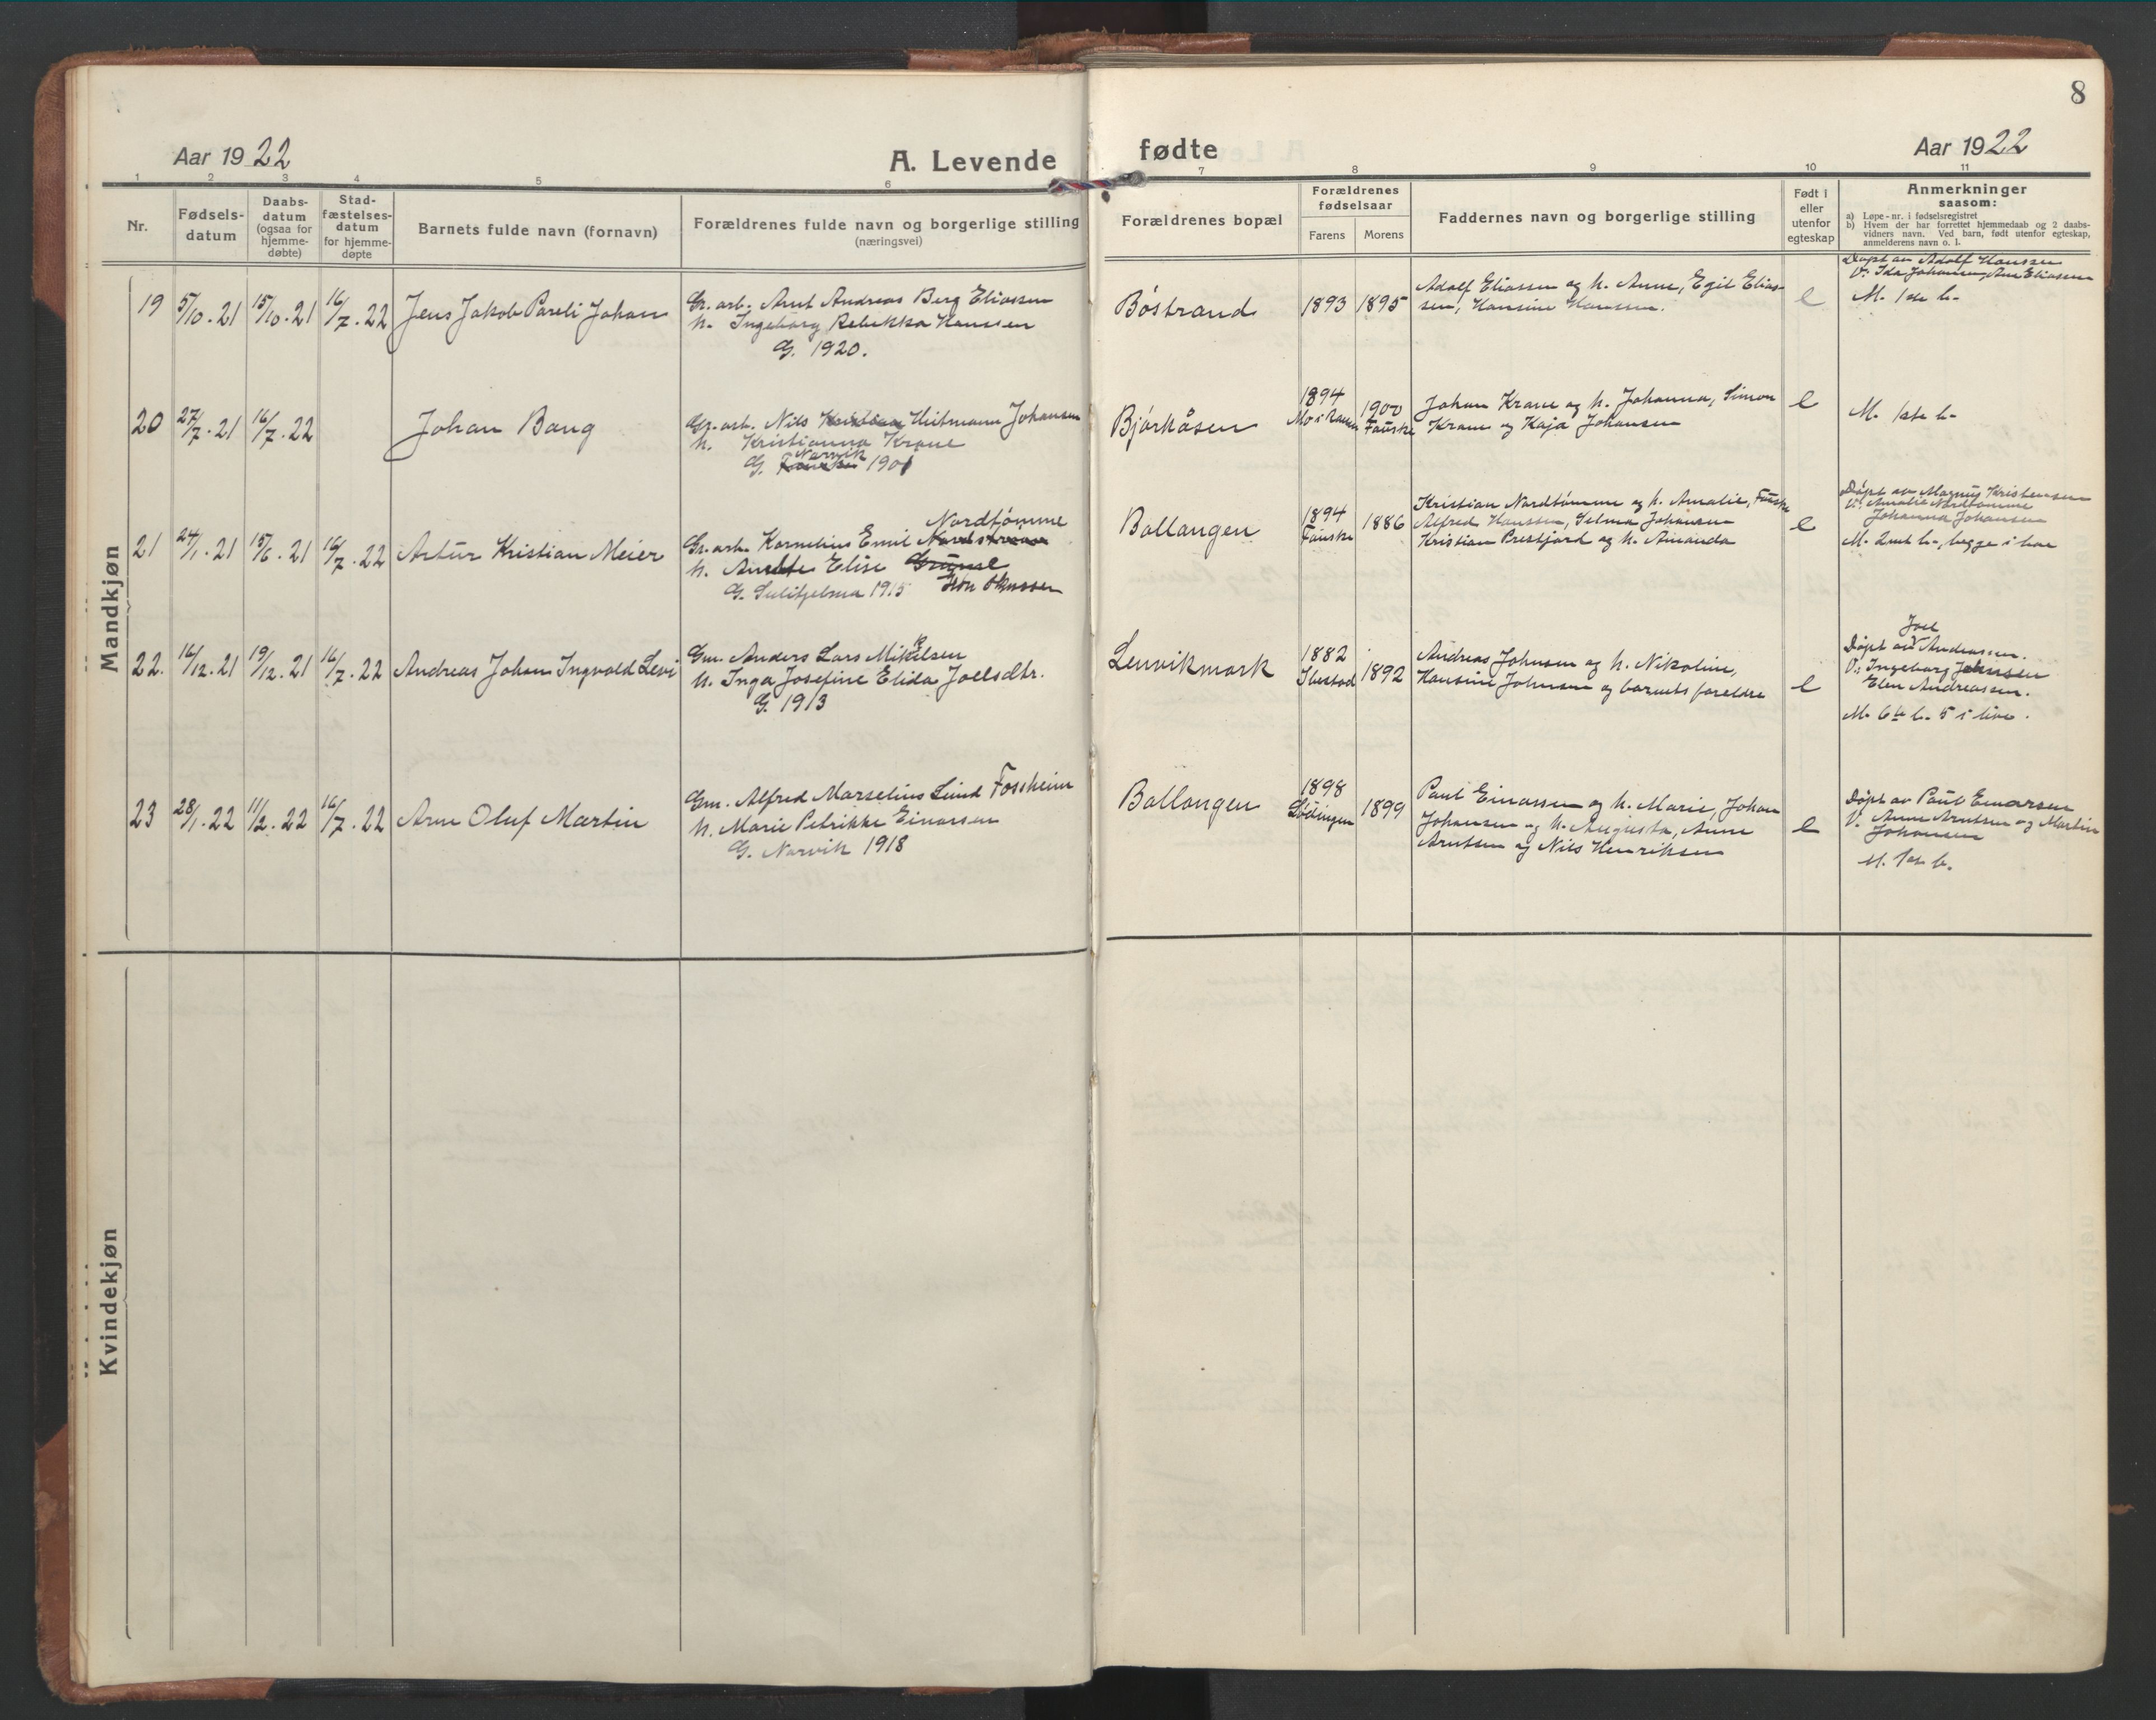 8
Aar 1922
A. Levende
fødte
Aar 1922
1 2 3 4 5 6 7 8 9 10 11
Nr.
Fødsels-
datum
Daabs-
datum
(ogsaa for
hjemme-
døbte)
Stad-
fæstelses-
datum
for hjemme-
døpte
Barnets fulde navn (fornavn)
Forældrenes fulde navn og borgerlige stilling
(næringsvei)
Forældrenes bopæl
Forældrenes
fødselsaar
Farens Morens
Faddernes navn og borgerlige stilling
Født i
eller
utenfor
egteskap
Anmerkninger
saasom:
a) Løpe-nr. i fødselsregistret
b) Hvem der har forrettet hjemmedaab og 2 daabs-
vidners navn. Ved barn, født utenfor egteskap,
anmelderens navn o. l.
Mandkjøn
19 5/10.21 15/10.21 16/7.22 Jens Jakob Pareli Johan
Gr. arb. Arnt Andreas Berg Eliassen
h. Ingeborg Rebekka Hanssen
G. 1920.
Bøstrand 1893 1895
Adolf Eliassen og h. Anne, Egil Elias-
sen, Hansine Hanssen.
e
Døpt av Adolf Hanssen
V: Ida Johansen, Ane Eliassen
M. 1ste b.
20 27/7.21 16/7.22 Johan Bang
Gr. arb. Nils Kristian Heitmann Johansen
h. Kristianna Krane
Narvik
G. Fauske 1901
Bjørkåsen
1894
Mo i Ranen
1900
Fauske
Johan Krane og h. Johanna, Simon
Krane og Kaja Johansen
e
M. 1ste b.
21 24/1.21 15/6.21 16/7.22 Artur Kristian Meier
Nordtømme
Gr. arb. Kornelius Emil Nordstrøm
h. Anette Elise
G. Sulitjelma 1915
Ballangen
1894
Fauske
1886
Kristian Nordtømme og h. Amalie, Fauske
Alfred Hanssen, Selma Johansen
Kristian Prestjord og h. Amanda
e
Døpt av Magnus Kristensen
V: Amalie Nordtømme
Johanna Johansen
M. 2net b., begge i live
22. 16/12.21 19/12.21 16/7.22 Andreas Johan Ingvald Levi
Gm. Anders Lars Mikkelsen
h. Inga Josefine Elida Joelsdtr.
G. 1913
Lenvikmark
1882
Ibestad
1892
Andreas Johnsen og h. Nikoline,
Hansine Johnsen og barnets foreldre
e
Joel
Døpt av Andreassen.
V: Ingeborg Johnsen
Elen Andreassen.
M. 6te b. 5 i live.
23 28/1.22 11/2.22 16/7.22 Arne Oluf Martin
Gm. Alfred Marselius Lund Fossheim
h. Marie Petrikke Einarsen
G. Narvik 1918
Ballangen
1898
Lødingen
1899
Paul Einarsen og h. Marie, Johan
Johansen og h. Augusta, Anne
Arntsen og Nils Henriksen
e
Døpt av Paul Einarsen
V. Anne Arntsen og Martin
Johansen
M. 1ste b.
Kvindekjøn